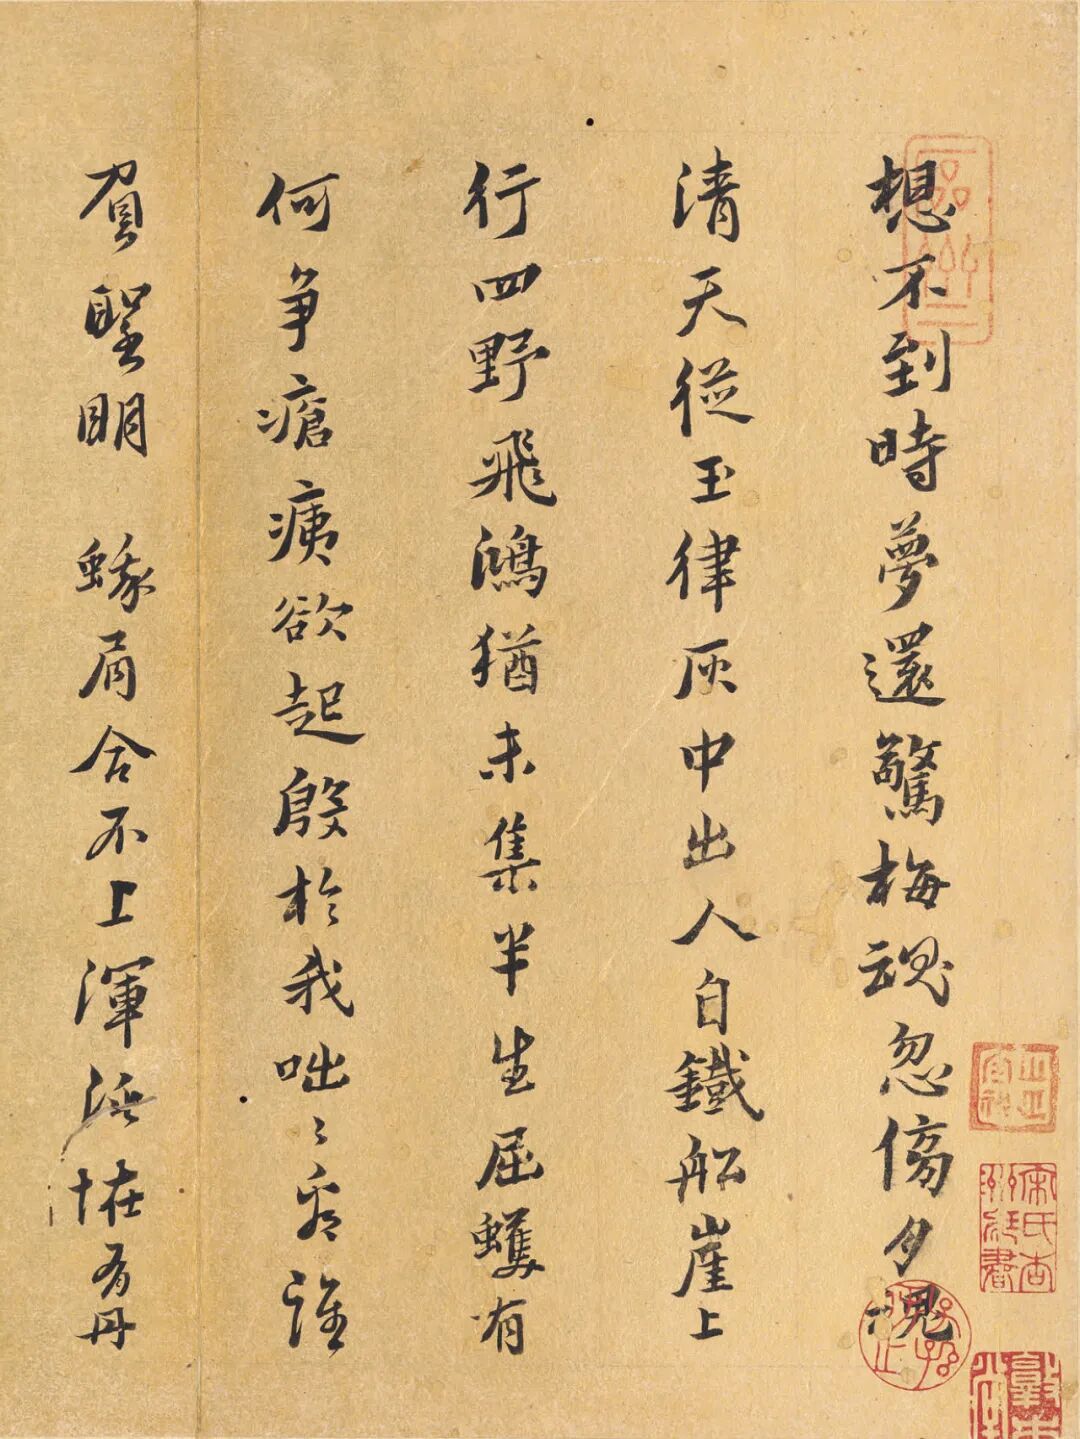 想不到時夢還驚梅魂忽傍夕愧
清天從玉律灰中出人自鐵船崖上
行四野飛鴻猶未集半生屈蠖有
何爭瘡痍欲起殷於我咄〻看誰
負聖明 蛾眉合不上渾
恠有丹